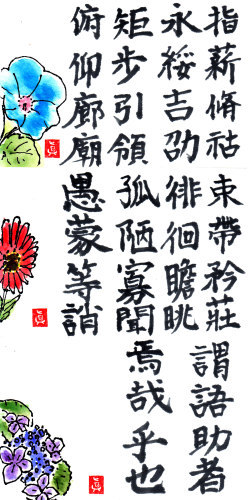 指薪脩祜
永綏吉劭
矩步引領
俯仰廊廟
眞
束帶矜莊
徘徊瞻眺
孤陋寡聞
愚蒙等誚
眞
謂語助者
焉哉乎也
眞